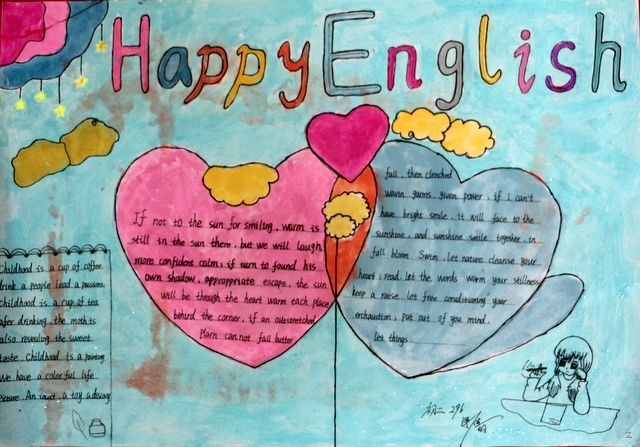 Happy English
If not to the sun for smiling, warm is
still in the sun there, but we will laugh
more confident calm, if turn to found his
own shadow, appropriate escape, the sun
will be through the heart warm each place
behind the corner, if an outstretched
Plam can not fall butter
fall, then clenched
warm garms, given power, if I can't
have bright smile, it will face to the
sunshine, and sunshine smile together, in
full bloom. Swim, let nature cleanse your
heart, read, let the words warm your stillness
keep a raise, let free conditioning your
orchaustion, Put out of you mind,
let things
Childhood is a cup of coffee
drink a people lead a passions
Childhood is a cup of tea
afer drinking the moth is
also revealing the sweet
taste. Childhood is a painting
We have a colorful life
Picture. An insect, a toy, a discovy
初二 296